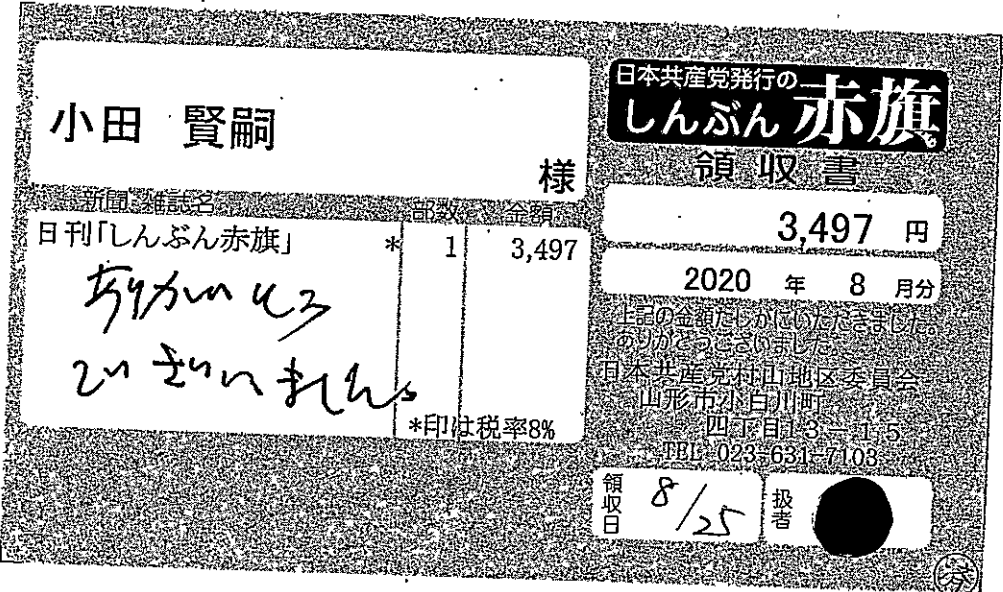 小田 賢嗣
様
新聞・雑誌名 部数 金額
日刊「しんぶん赤旗」 * 1 3,497
ありがとう
ございました。
*印は税率8%
日本共産党発行の
しんぶん赤旗
領収書
3,497 円
2020 年 8 月分
上記の金額たしかにいただきました。
ありがとうございました。
日本共産党村山地区委員会
山形市小白川町
四丁目13-15
TEL 023-631-7103
領収日 8/25
扱者